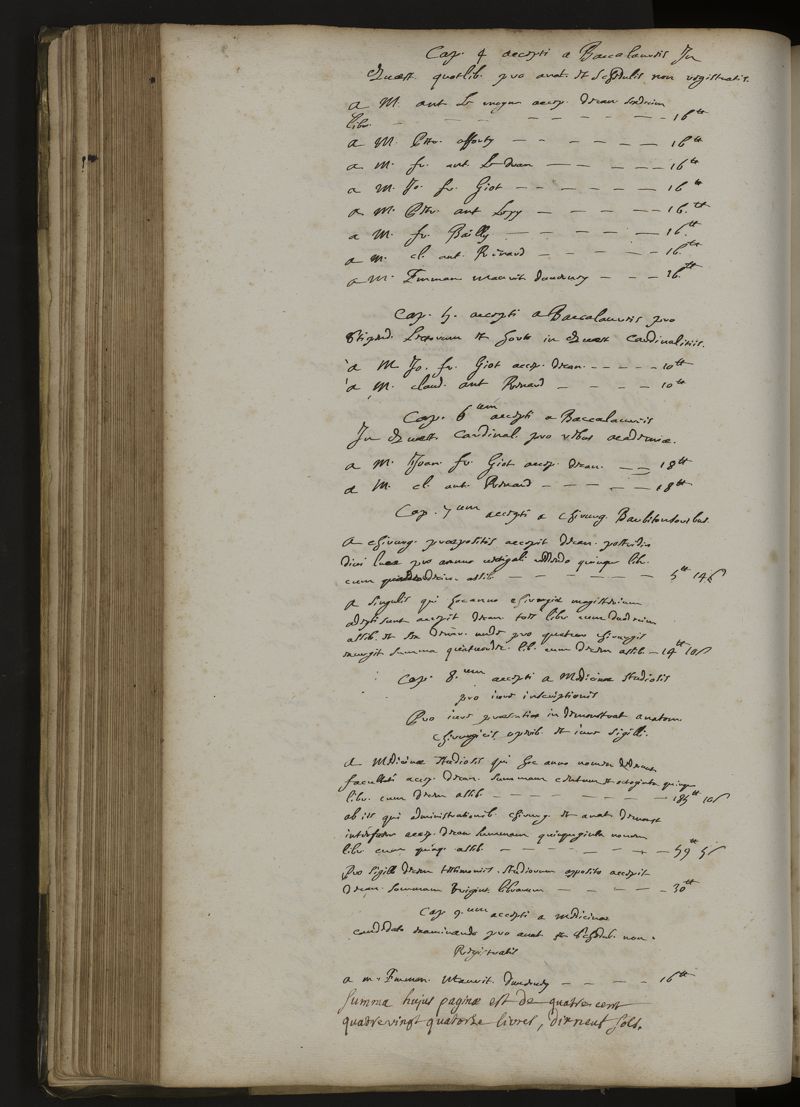 Cap. 4 accepti a Baccalaureis In
Quæst. quotlib. pro anat. et schedulis non registratis.
a M. ant. Le moyne accep. decan. sexdecim
libr. — — — — — — 16tt
a M. Petr. afforty — — — — — — 16tt
a M. fr. ant. Le Dran — — — — — 16tt
a M. Jo. fr. Giot — — — — — — 16tt
a M. Petr. ant. Lepy — — — — — 16tt
a M. fr. Bailly — — — — — 16tt
a M. cl. ant. Renard — — — — — 16tt
a M. Firmian. Mauric. — — — 16tt
Cap. 5. accepti a Baccalaureis pro
Stipend. Lectorum et horto in Quæst. Cardinalitiis.
a M. Jo. fr. Giot accep. decan. — — — — — 10tt
a M. claud. ant. Renard — — — — 10tt
Cap. 6um accepti a Baccalaureis
In Quæst. Cardinal. pro rebus academiæ.
a M. Joan. fr. Giot accep. decan. — — 18tt
a M. cl. ant. Renard — — — — — 18tt
Cap. 7um accepti a chirurg. Barbitonsoribus.
a chirurg. præpositis accepit decan. postridie
divi lucæ pro annuo vectigali quinque lib.
cum assib. — — — — — — — 5tt 14s
a singulis qui hoc anno chirurgiæ magisterium
adepti sunt accepit decan. tres libr. cum duodecim
assib. et sex denar. unde pro quatuor chirurgis
summa quatuordec. lib. cum decem assib. — 14tt 10s
Cap. 8.um accepti a Medicinæ studiosis
pro jure inscriptionis
Pro jure præsentiæ in demonstrat. anatom.
chirurgicis, et jure sigilli.
a Medicinæ studiosis qui hoc anno nomen dederunt
facultati accep. decan. summam centum et octoginta quinque
libr. cum decem assib. — — — — — — — 185tt 10s
ab iis qui administrationib. chirurg. et anat.
interfuere accep. decan. summam quinquaginta novem
libr. cum quinq. assib. — — — — — — — 59tt 5s
Pro sigillo decem testimoniis studiorum apposito accepit
decan. summam triginta librarum — — — — — 30tt
Cap. 9.um accepti a Medicinæ
candidato examinando pro anat. et schedul. non
Registratis
a M. Firmian. Mauric. — — — — 16tt
Summa hujus paginæ est de quatre cent
quatrevingt quatorze livres, dix neuf sols.